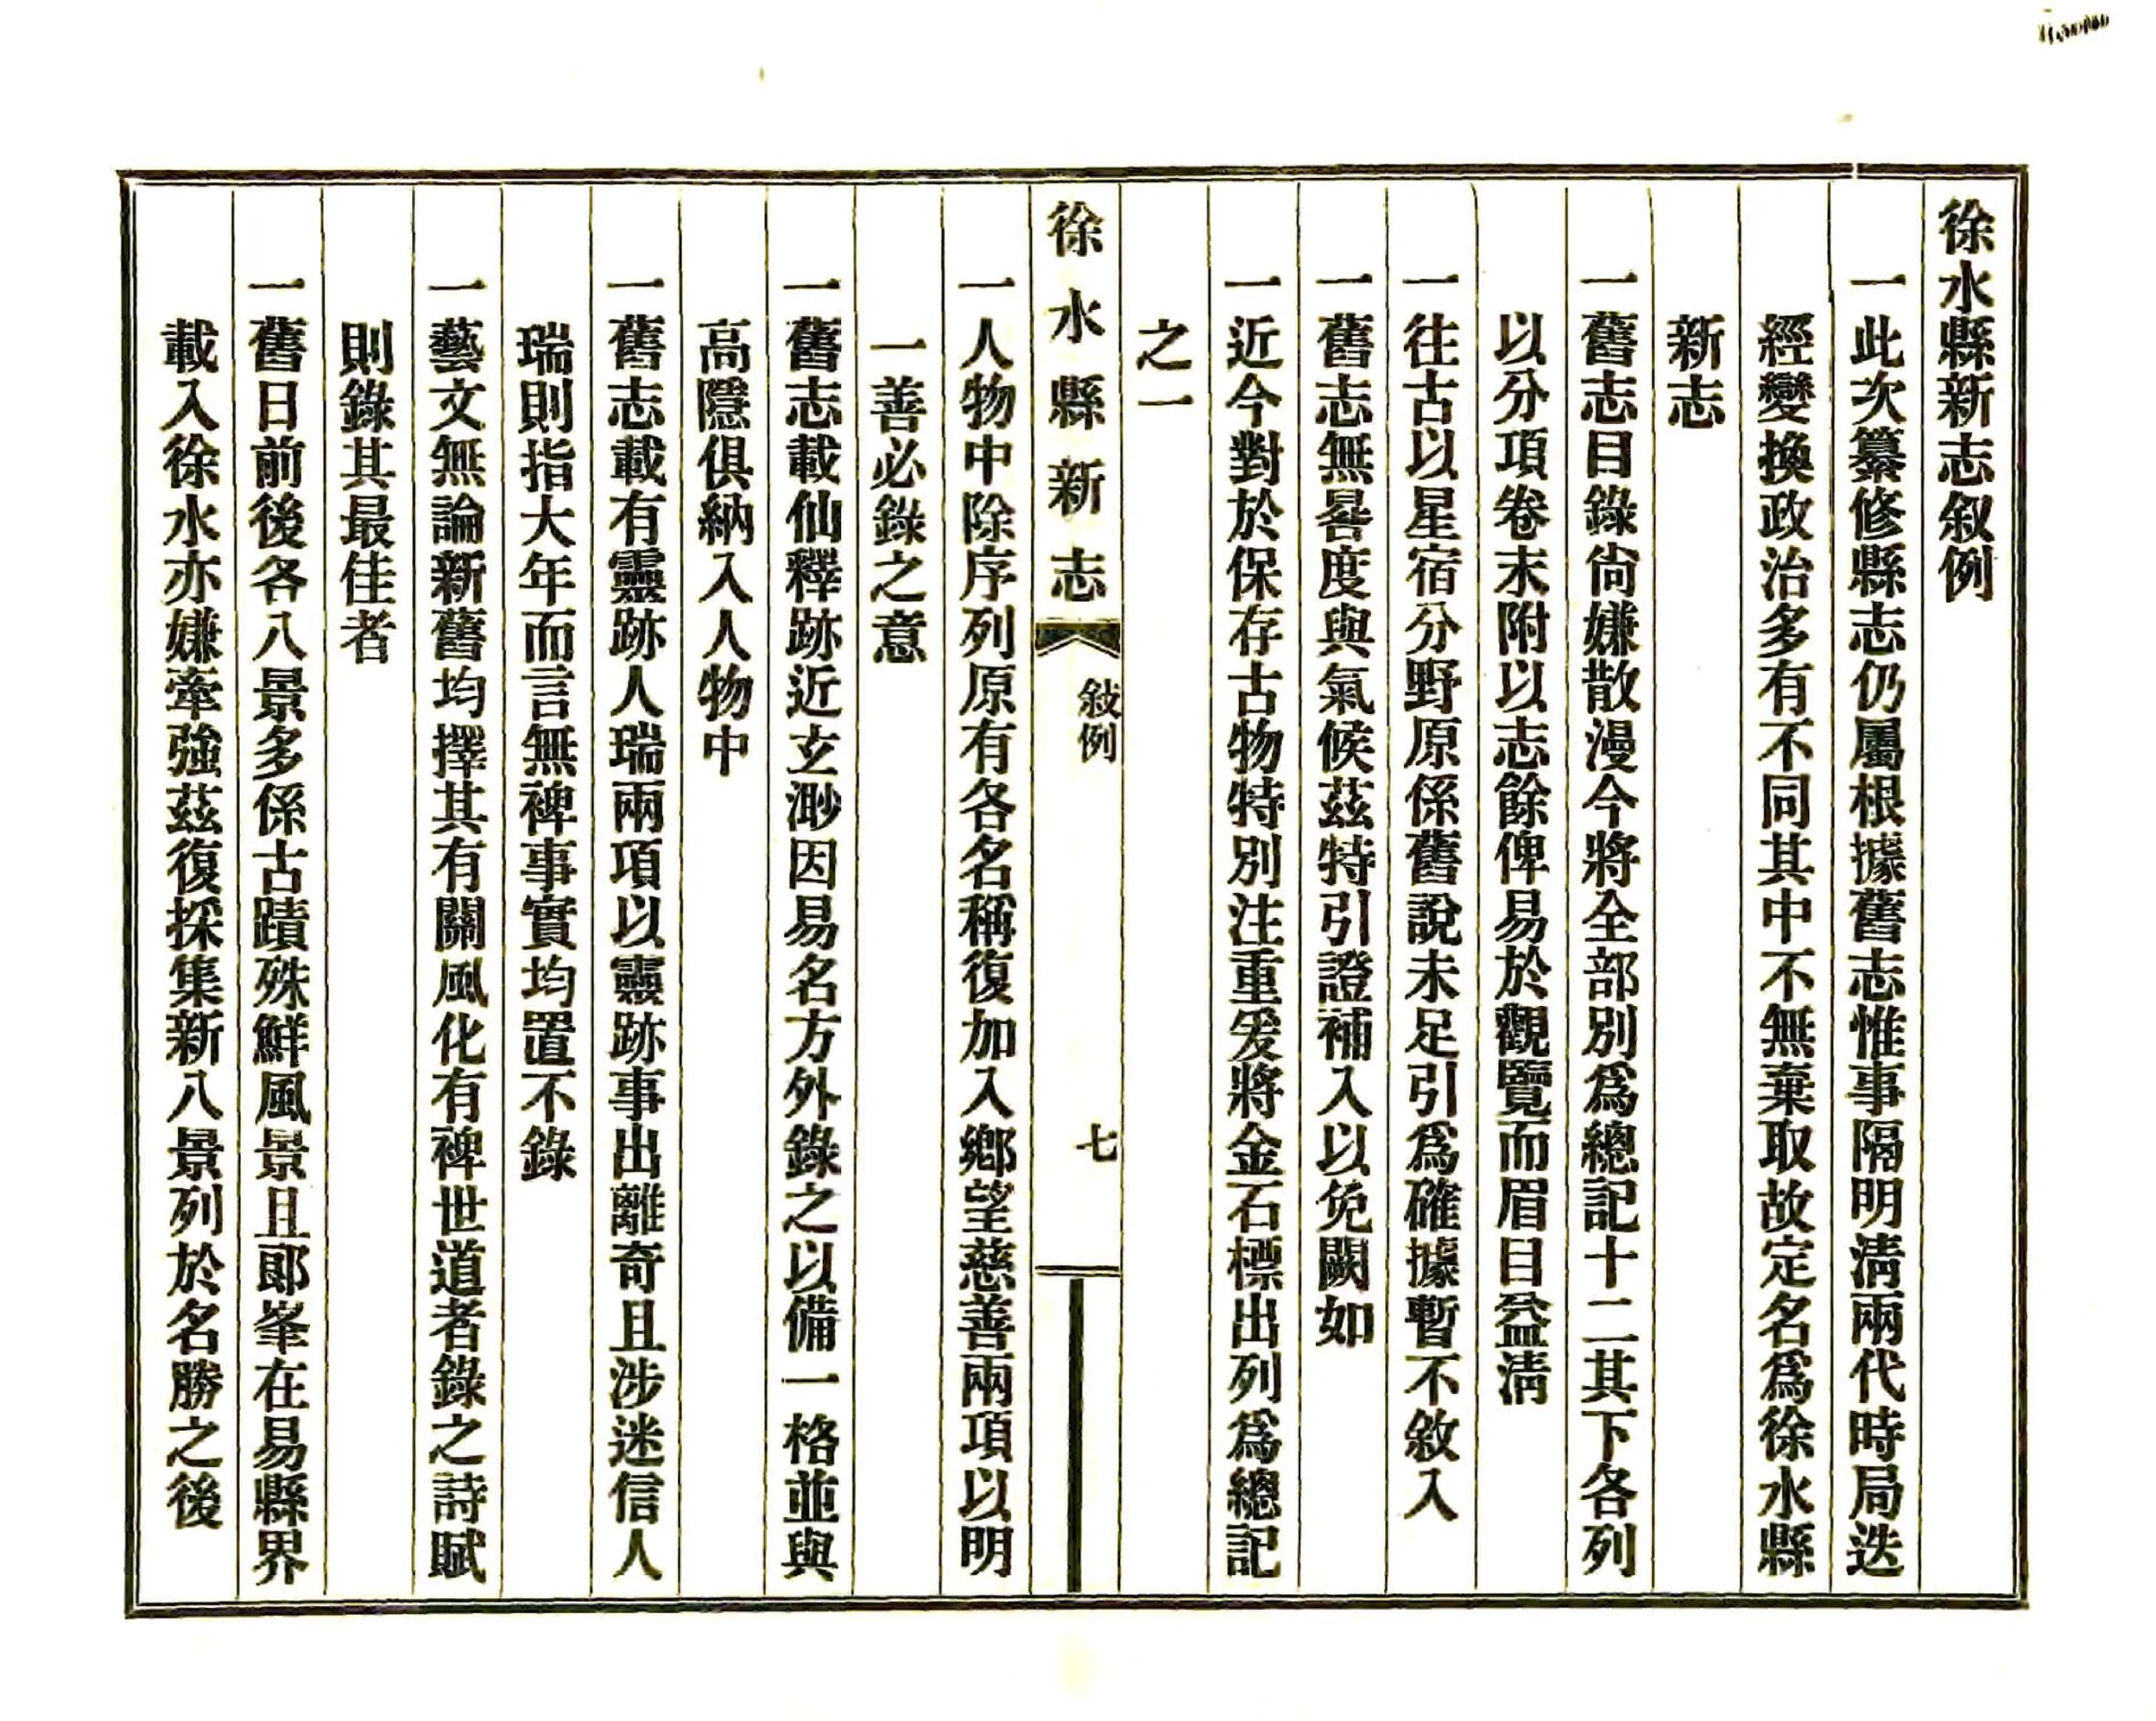 徐水縣新志叙例
一此次纂修縣志仍屬根據舊志惟事隔明淸兩代時局迭
經變換政治多有不同其中不無棄取故定名爲徐水縣
新志
一舊志目錄尙嫌散漫今將全部別爲總記十二其下各列
以分項卷末附以志餘俾易於觀覽而眉目益淸
一往古以星宿分野原係舊說未足引爲確據暫不敘入
一舊志無晷度與氣候茲特引證補入以免闕如
一近今對於保存古物特別注重爰將金石標出列爲總記
之一
徐水縣新志
敍例
七
一人物中除序列原有各名稱復加入鄕望慈善兩項以明
一善必錄之意
一舊志載仙釋跡近玄渺因易名方外錄之以備一格並與
高隱俱納入人物中
一舊志載有靈跡人瑞兩項以靈跡事出離奇且涉迷信人
瑞則指大年而言無裨事實均置不錄
一藝文無論新舊均擇其有關風化有裨世道者錄之詩賦
則錄其最佳者
一舊日前後各八景多係古蹟殊鮮風景且郞峯在易縣界
載入徐水亦嫌牽強茲復採集新八景列於名勝之後